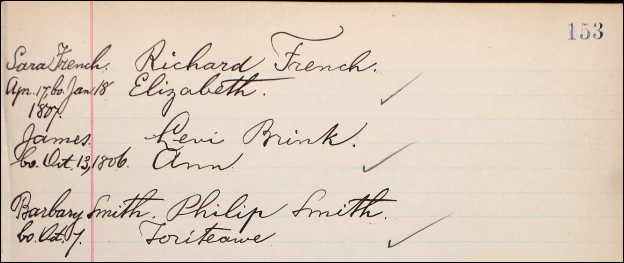 153
Sara French. Richard French.
Apr. 17, bo. Jan. 18 Elizabeth.
1807.
James. Levi Brink.
bo. Oct. 13, 1806. Ann
Barbary Smith. Philip Smith.
bo. Oct. 7. Toriteawe